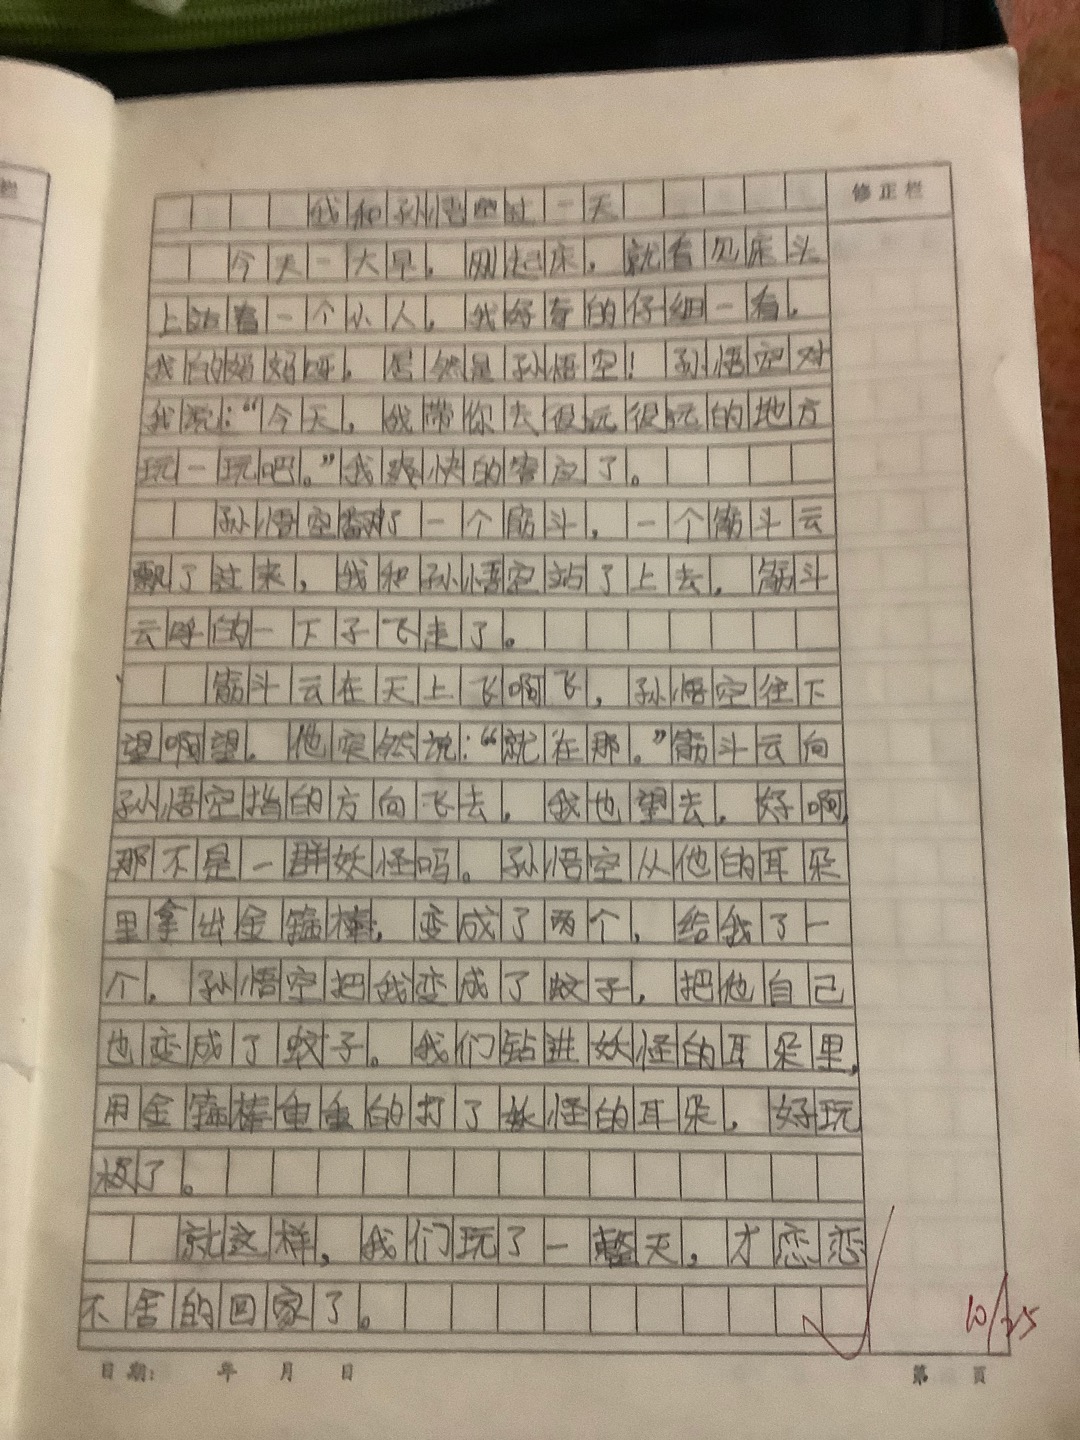 修正栏
我和孙悟空过一天
今天一大早，刚起床，就看见床头
上站着一个小人，我好奇的仔细一看，
我的妈妈呀，居然是孙悟空！孙悟空对
我说：“今天，我带你去很远很远的地方
玩一玩吧。”我爽快的答应了。
孙悟空翻了一个筋斗，一个筋斗云
飘了过来，我和孙悟空站了上去，筋斗
云呼的一下子飞走了。
筋斗云在天上飞啊飞，孙悟空往下
望啊望，他突然说：“就在那。”筋斗云向
孙悟空指的方向飞去，我也望去，好啊，
那不是一群妖怪吗。孙悟空从他的耳朵
里拿出金箍棒，变成了两个，给我了一
个，孙悟空把我变成了蚊子，把他自己
也变成了蚊子。我们钻进妖怪的耳朵里，
用金箍棒重重的打了妖怪的耳朵，好玩
极了。
就这样，我们玩了一整天，才恋恋
不舍的回家了。
10/25
日期： 年 月 日
第 页